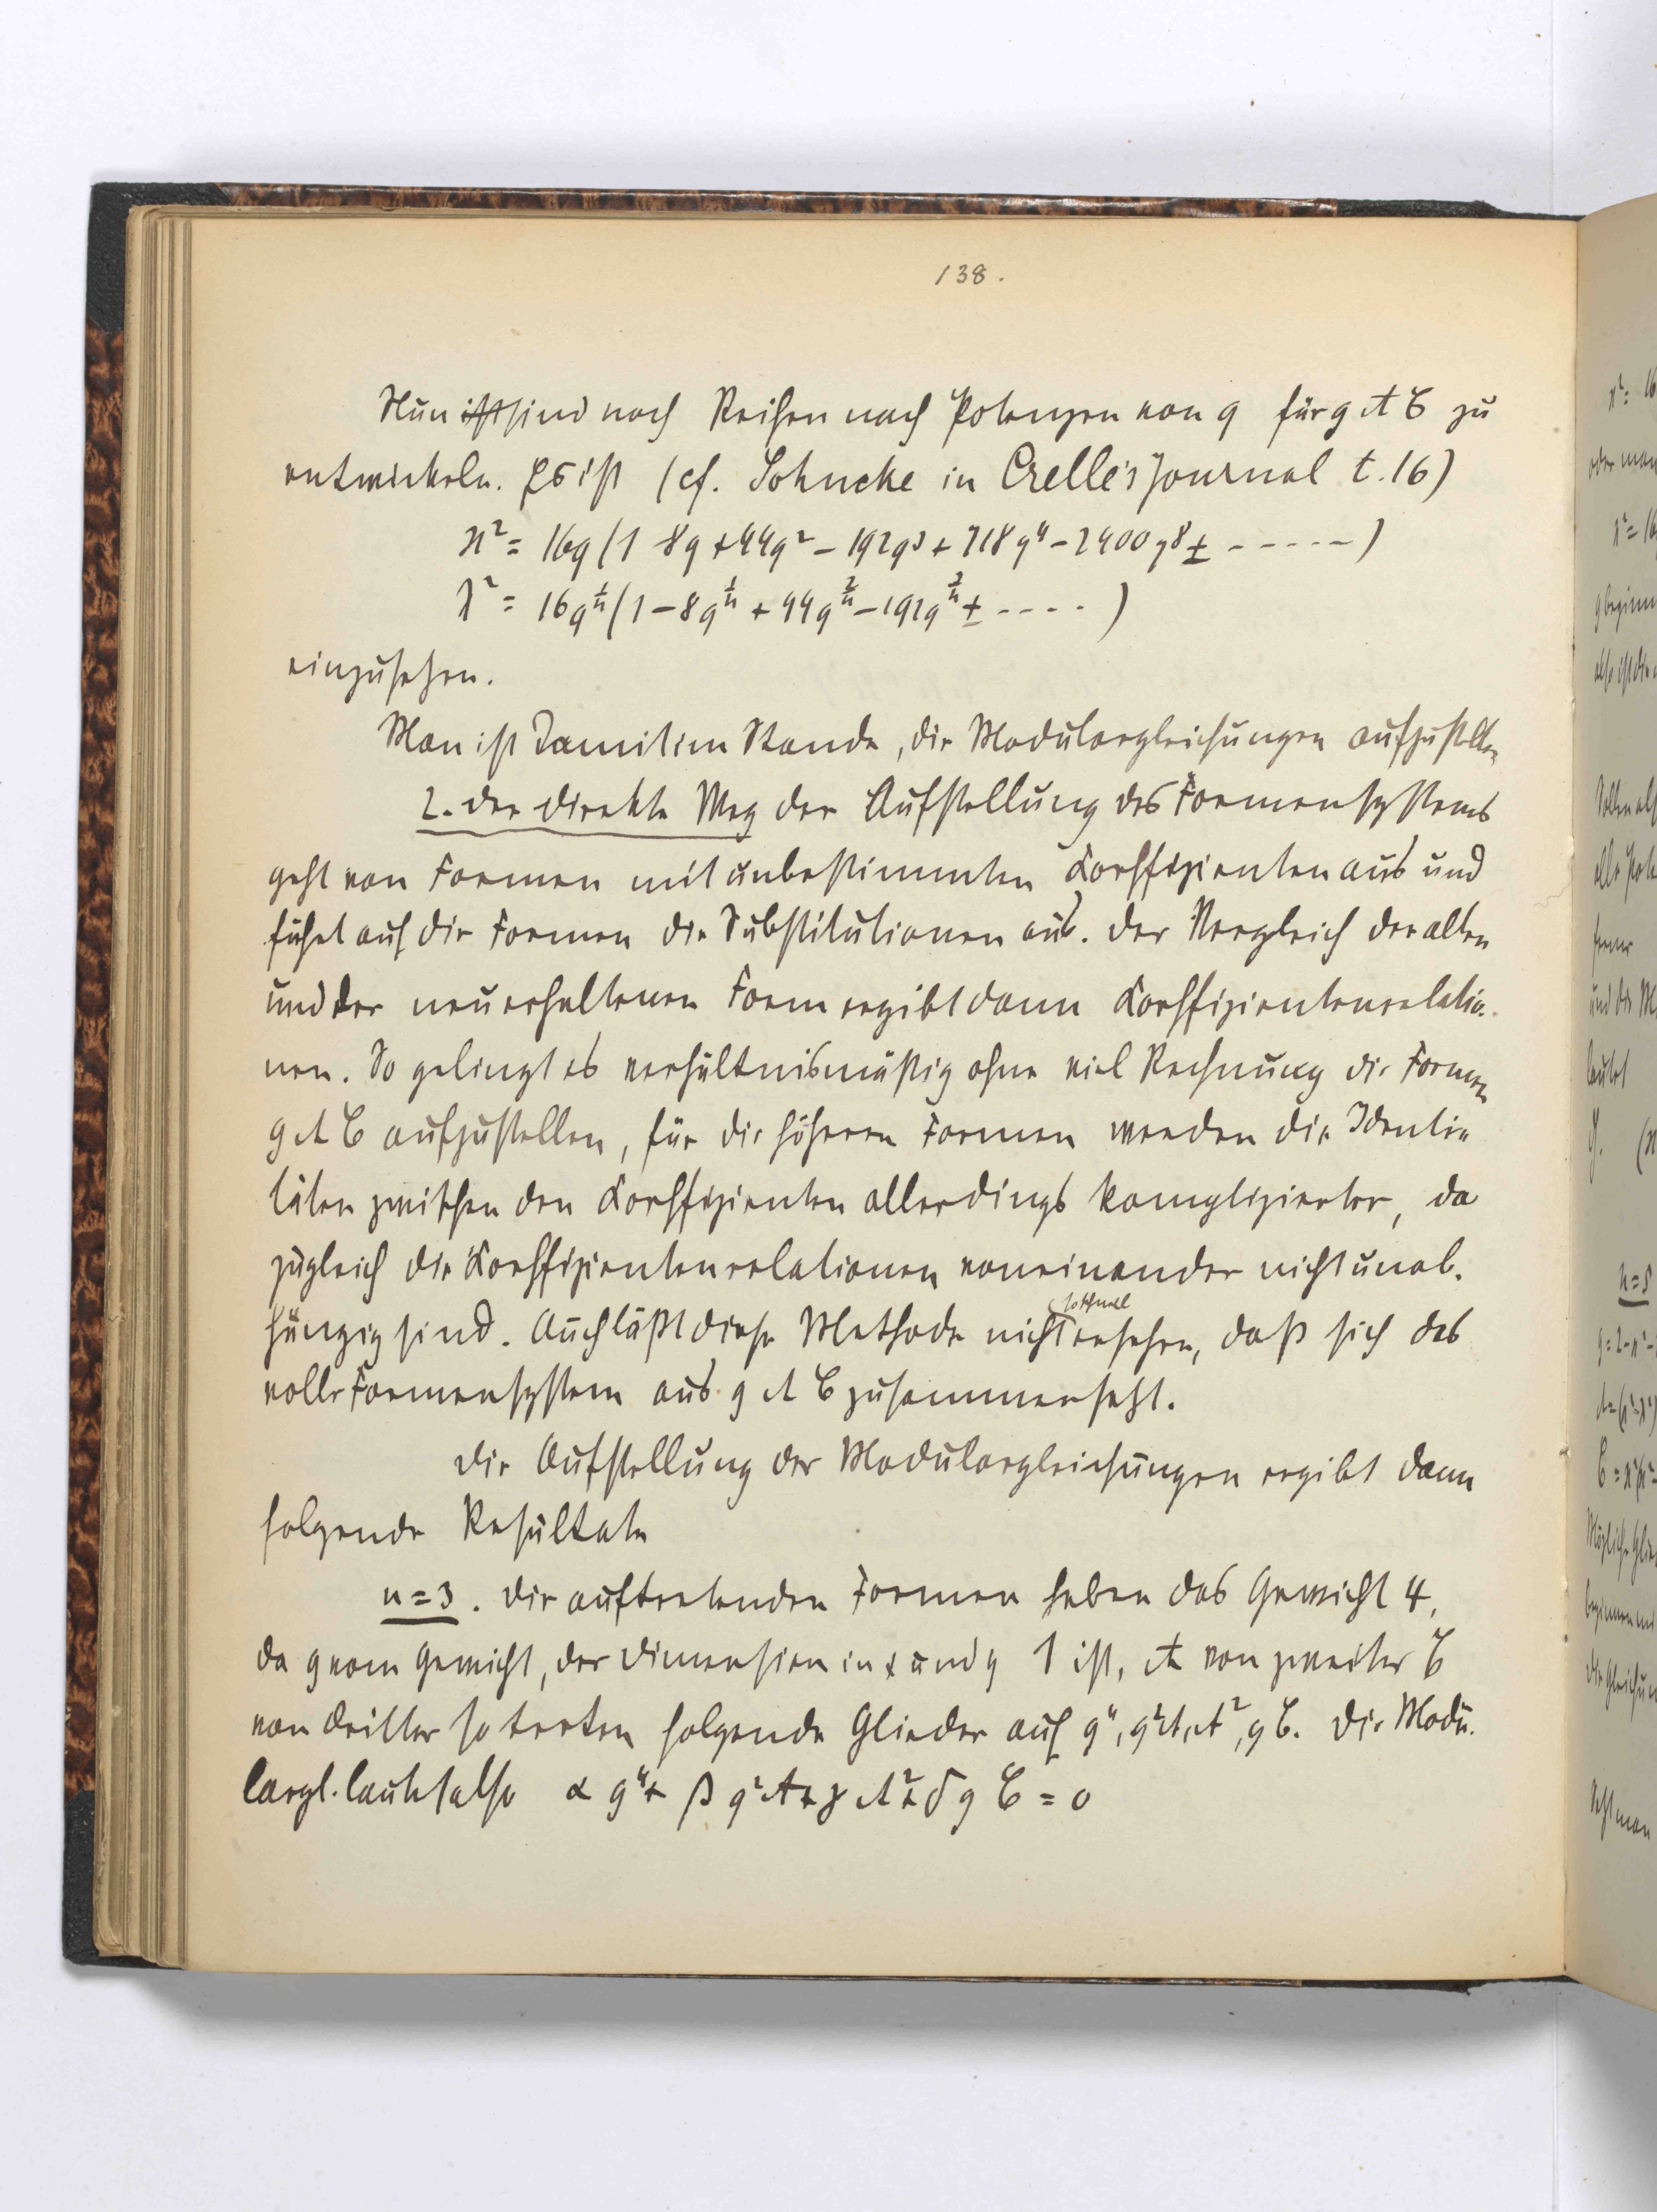 138.
Nun ist sind noch Reihen nach Potenzen von q für g A C zu
entwickeln. Es ist (cf. Sohncke in Crelle's Journal t. 16)
ϰ² = 16q (1 - 8q + 44q² - 192q³ + 718q⁴ - 2400q⁸ ± ------)
λ² = 16q^{1/n} (1 - 8q^{1/n} + 44q^{2/n} - 192q^{3/n} ± ----)
einzusetzen.
Man ist damit im Stande, die Modulargleichungen aufzustellen
2. Der direkte Weg der Aufstellung des Formensystems
geht von Formen mit unbestimmten Koeffizienten aus und
führt auf die Formen die Substitutionen aus. Der Vergleich der alten
und der neuerhaltenen Form ergibt dann Koeffizientenrelatio-
nen. So gelingt es verhältnismäßig ohne viel Rechnung die Formen
g A C aufzustellen, für die höheren Formen werden die Identi-
täten zwischen den Koeffizienten allerdings komplizierter, da
zugleich die Koeffizientenrelationen voneinander nicht unab-
hängig sind. Auch läßt diese Methode nicht so schnell ersehen, daß sich das
volle Formensystem aus g A C zusammensetzt.
Die Aufstellung der Modulargleichungen ergibt dann
folgende Resultate
n = 3. Die auftretenden Formen haben das Gewicht 4,
da g vom Gewicht, der Dimension in x und y 1 ist, A von zweiter C
von dritter so treten folgende Glieder auf g⁴, g²A, A², g C. Die Modu-
largl. lautet also α g⁴ + β g² A + γ A² + δ g C = 0